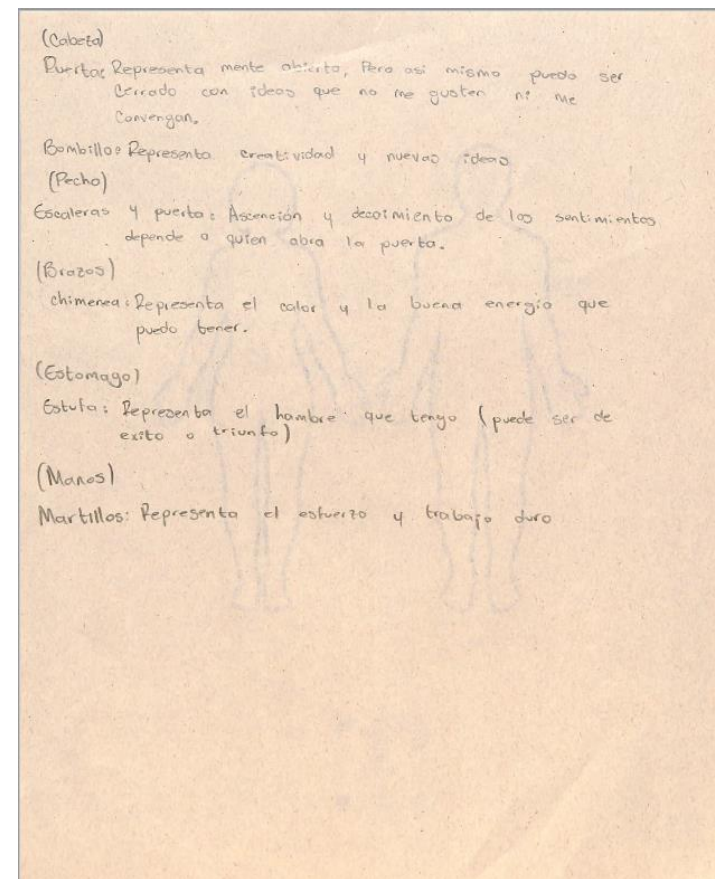 (Cabeza)
Puerta: Representa mente abierta, Pero asi mismo puedo ser
Cerrado con ideas que no me gusten ni me
Convengan.
Bombillo: Representa creatividad y nuevas ideas
(Pecho)
Escaleras y puerta: Ascención y decaimiento de los sentimientos
depende a quien abra la puerta.
(Brazos)
chimenea: Representa el calor y la buena energia que
puedo tener.
(Estomago)
Estufa: Representa el hambre que tengo (puede ser de
exito o triunfo)
(Manos)
Martillos: Representa el esfuerzo y trabajo duro